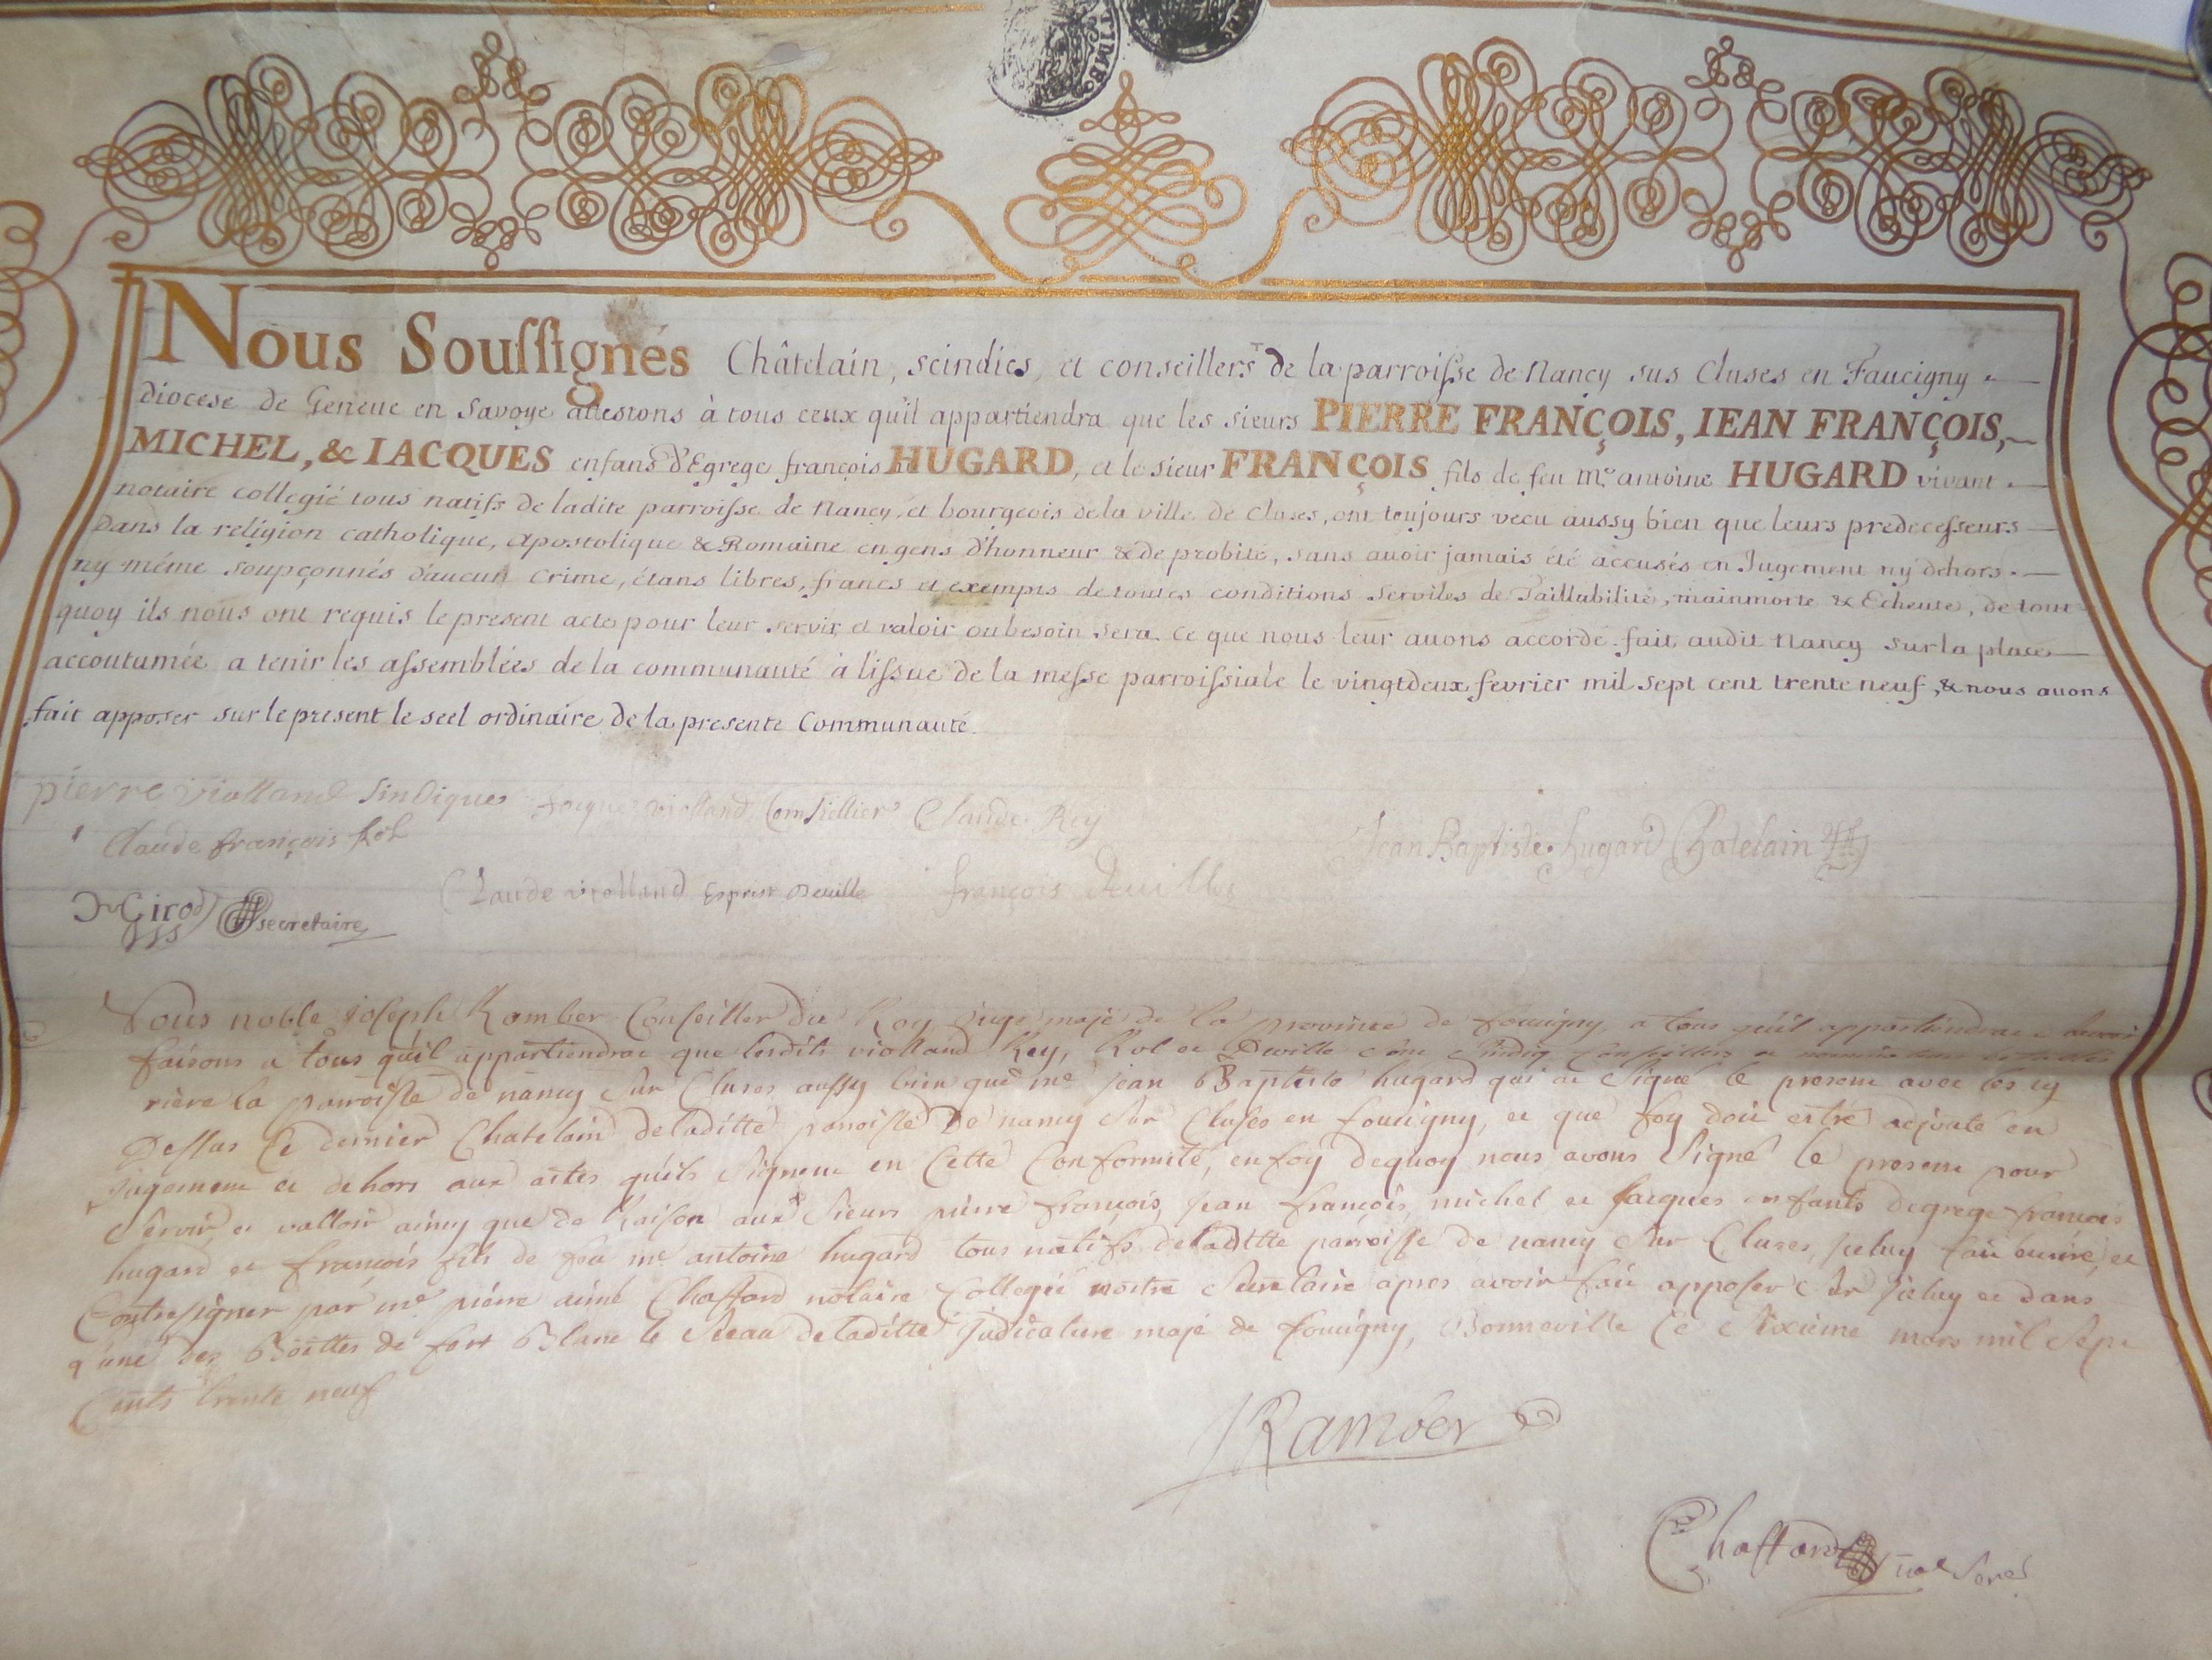 TIMBR
Nous Soussignés Châtelain, scindics, et conseillers de la parroisse de Nancy sus Cluses en Faucigny
diocese de Geneue en Savoye attestons à tous ceux qu'il appartiendra que les sieurs PIERRE FRANÇOIS, IEAN FRANÇOIS,
MICHEL, & IACQUES enfans d'Egrege françois HUGARD, et le sieur FRANÇOIS fils de feu Me. antoine HUGARD vivant
notaire collegié tous natifs de ladite parroisse de Nancy, et bourgeois de la ville de Cluses, ont toujours vecu aussy bien que leurs predecesseurs
Dans la religion catholique, apostolique & Romaine en gens d'honneur & de probité, sans auoir jamais été accusés en Jugement ny dehors
ny méme soupçonnés d'aucun Crime, étans libres, francs et exempts de toutes conditions Serviles de Taillabilité, mainmorte & Echeute, de tout
quoy ils nous ont requis le present acte pour leur servir et valoir ou besoin Sera. Ce que nous leur auons accordé. fait audit Nancy Sur la place
accoutumée a tenir les assemblées de la communauté à l'issue de la messe parroissiale le vingtdeux fevrier mil sept cent trente neuf, & nous auons
fait apposer sur le present le seel ordinaire de la presente Communauté
pierre violland Sindiques Jaques violland Comseillier Claude Rey
Claude françois Rol
Jean Baptiste hugard Chatelain
Claude violland Esprit Deuille françois Deuille
Girod secretaire
Nous noble joseph Ramber Conseiller du Roy juge maje de la province de foucigny a tous qu'il appartiendra
faisons a tous qu'il appartiendra que lesdits violland Rey, Rol et Deville Conseillers
riere la parroisse de nancy sur Cluses aussy bien que me jean Baptiste hugard qui a signé le present avec les cy
Dessus ce dernier Chatelain deladitte parroisse De nancy sur Cluses en foucigny, et que foy doit estre adjouté en
jugement et dehors aux actes qu'ils signent en Cette Conformité, en foy dequoy nous avons signé le present pour
servir et valloir ainsy que de Raison aux sieurs pierre françois, jean françois, michel et jacques enfants degrege francois
hugard et françois fils de feu me antoine hugard tous natifs deladitte parroisse de nancy sur Cluses, jceluy fait et
Contresigner par me pierre aimé Chaffard notaire Collegié nostre Secretaire apres avoir fait apposer sur jceluy et dans
q'une des Boettes de fert Blanc le Sceau deladitte judicature maje de foucigny, Bonneville ce sixieme mars mil Sept
Cents trente neuf
JRamber
Chaffard